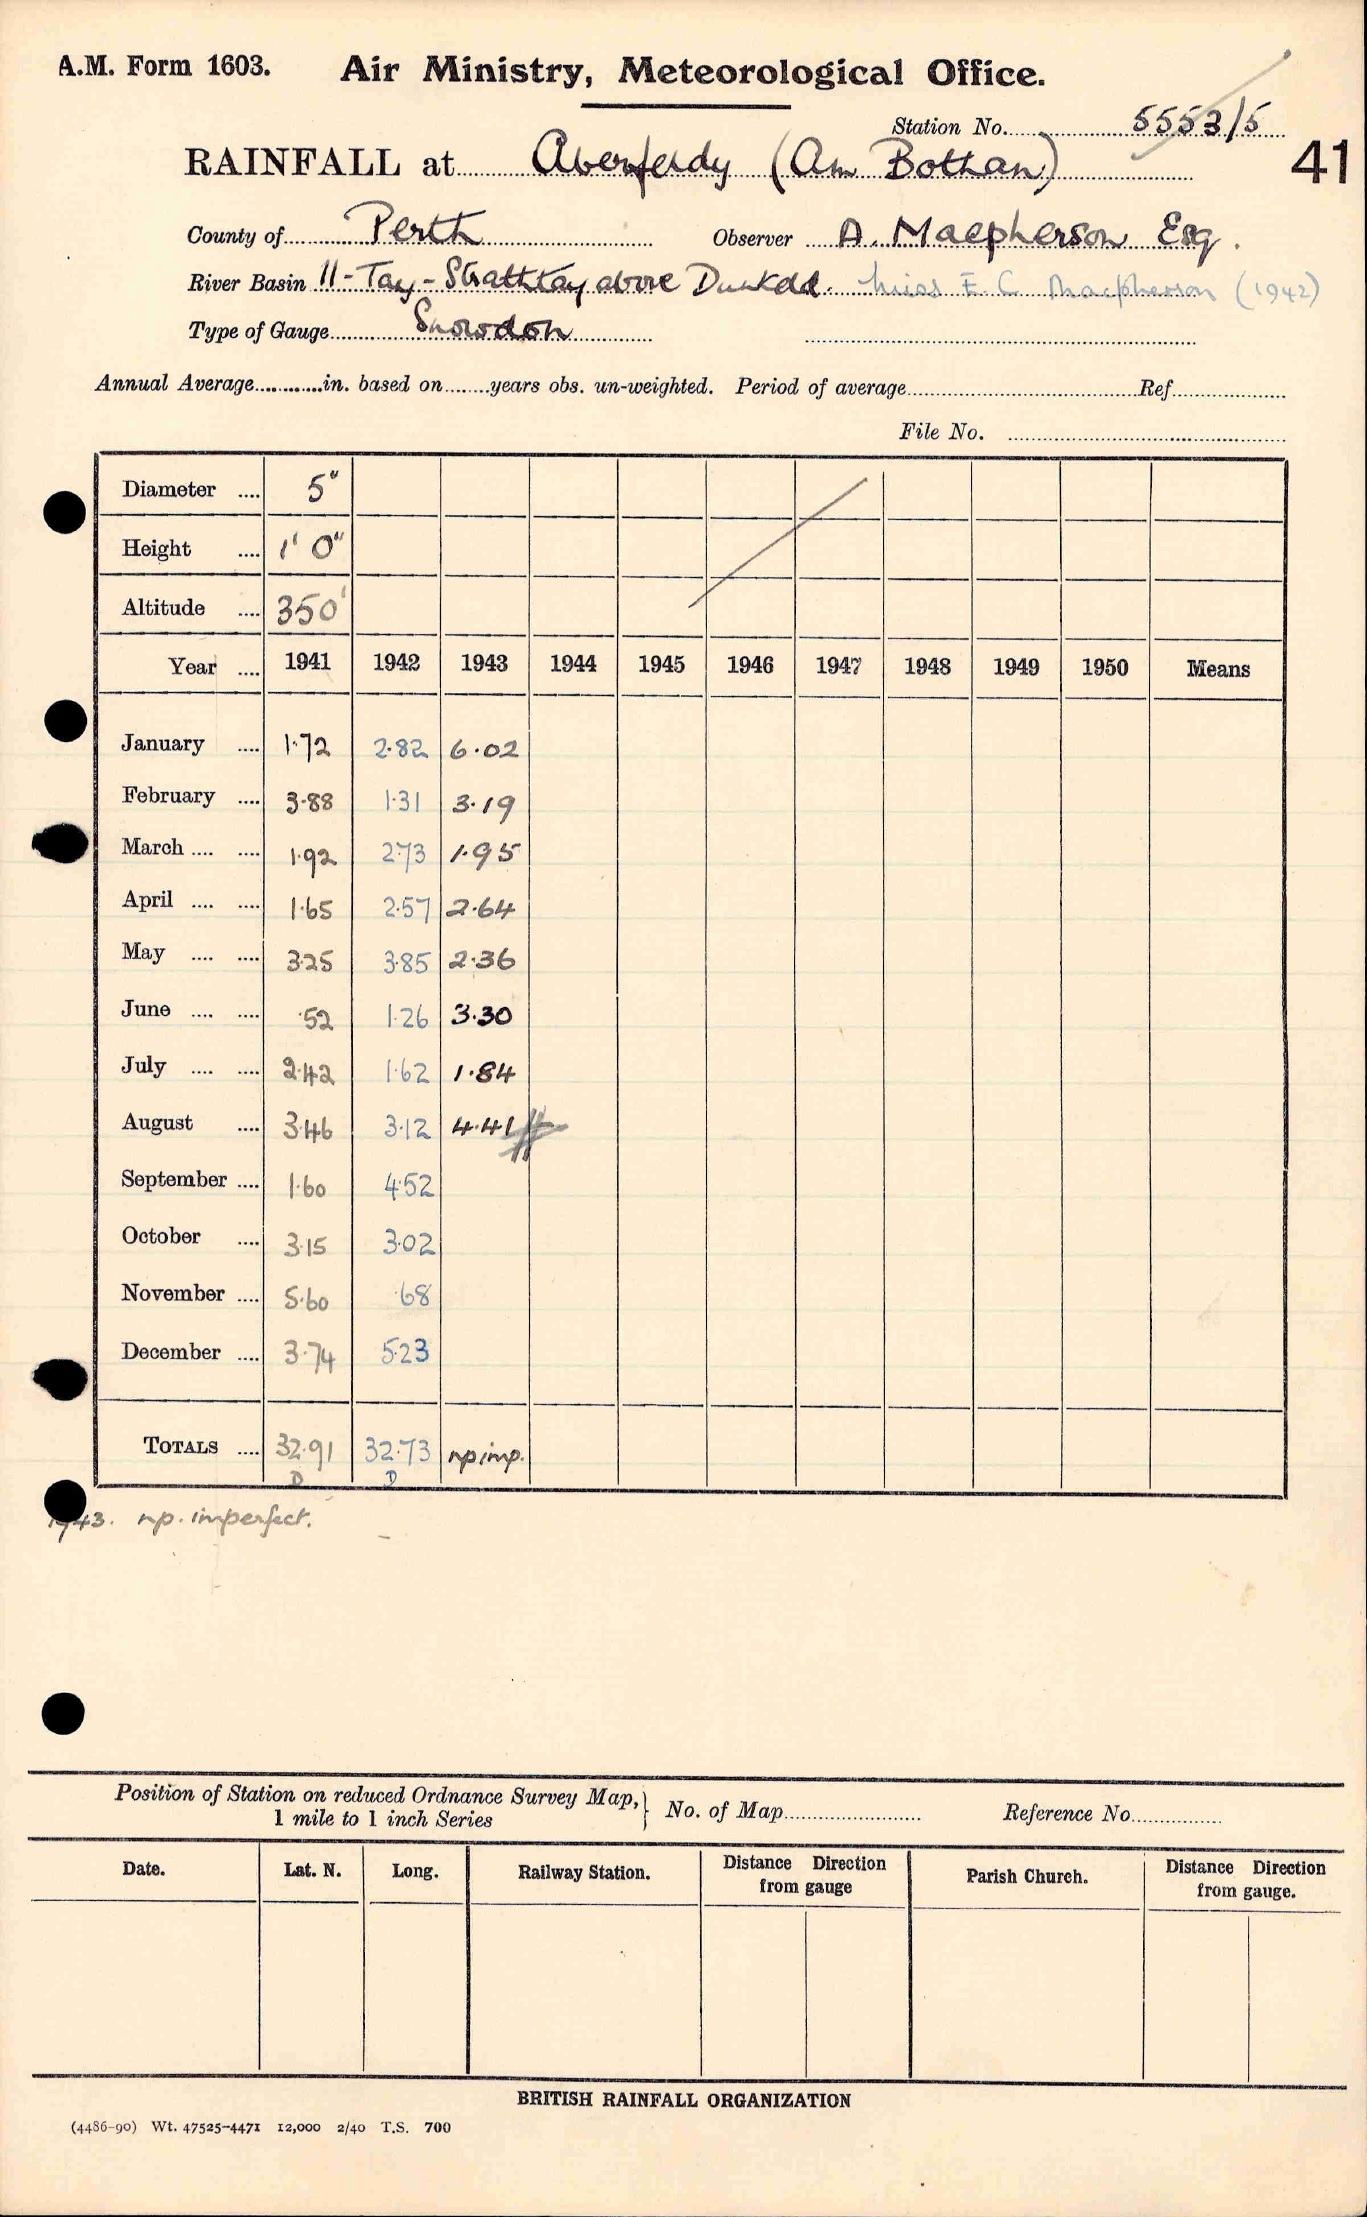 A.M. Form 1603. Air Ministry, Meteorological Office.
Station No. 5553/5
41
RAINFALL at Aberfeldy (Am Bothan)
County of Perth Observer A. Macpherson Esq.
River Basin 11-Tay-Strathtay above Dunkeld. Miss E.C. Macpherson (1942)
Type of Gauge Snowdon
Annual Average in. based on years obs. un-weighted. Period of average Ref
File No.
Diameter .... 5"
Height .... 1' 0"
Altitude .... 350'
Year .... 1941 1942 1943 1944 1945 1946 1947 1948 1949 1950 Means
January .... 1.72 2.82 6.02
February .... 3.88 1.31 3.19
March .... .... 1.92 2.73 1.95
April .... .... 1.65 2.57 2.64
May .... .... 3.25 3.85 2.36
June .... .... .52 1.26 3.30
July .... .... 2.42 1.62 1.84
August .... 3.46 3.12 4.41
September .... 1.60 4.52
October .... 3.15 3.02
November .... 5.60 .68
December .... 3.74 5.23
TOTALS .... 32.91 32.73 np imp.
D D
1943. np. imperfect.
Position of Station on reduced Ordnance Survey Map, 1 mile to 1 inch Series } No. of Map Reference No.
Date. Lat. N. Long. Railway Station. Distance Direction from gauge Parish Church. Distance Direction from gauge.
BRITISH RAINFALL ORGANIZATION
(4486-90) Wt. 47525-4471 12,000 2/40 T.S. 700